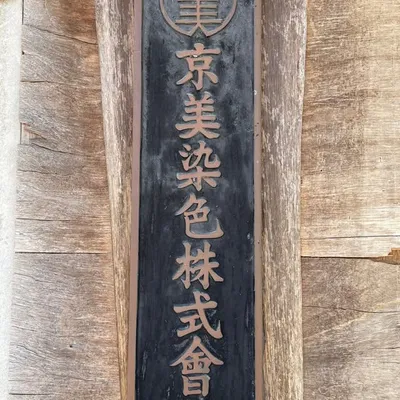 美
京美染色株式會